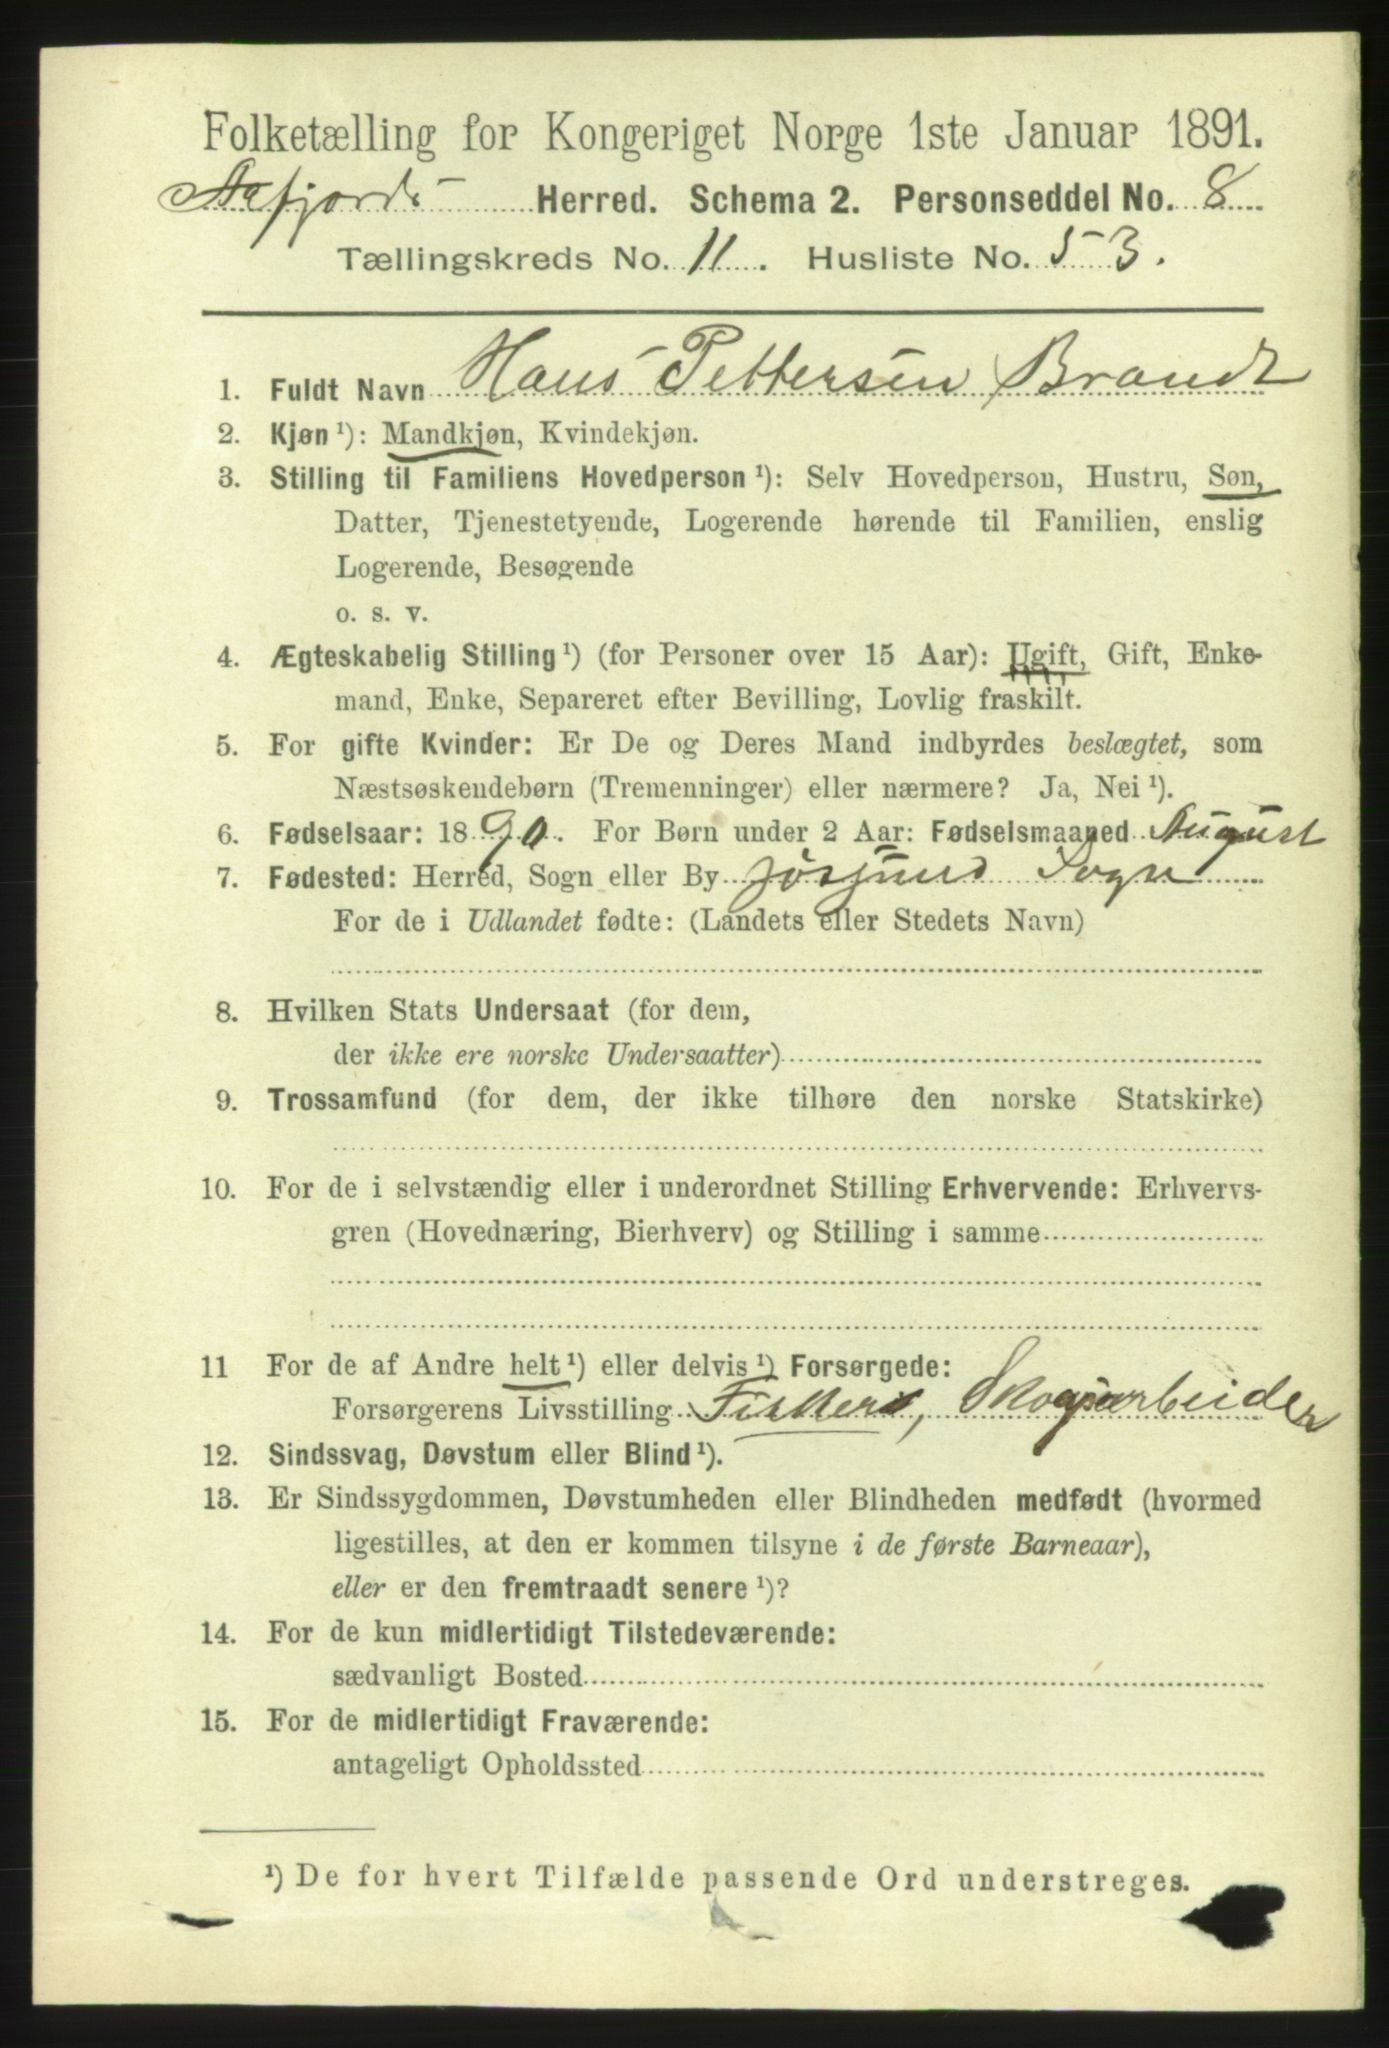 Folketælling for Kongeriget Norge 1ste Januar 1891.
Aafjords Herred. Schema 2. Personseddel No. 8
Tællingskreds No. 11. Husliste No. 53.
1. Fuldt Navn Hans Pettersen Brandt
2. Kjøn ¹): Mandkjøn, Kvindekjøn.
3. Stilling til Familiens Hovedperson ¹): Selv Hovedperson, Hustru, Søn,
Datter, Tjenestetyende, Logerende hørende til Familien, enslig
Logerende, Besøgende
o. s. v.
4. Ægteskabelig Stilling ¹) (for Personer over 15 Aar): Ugift, Gift, Enke-
mand, Enke, Separeret efter Bevilling, Lovlig fraskilt.
5. For gifte Kvinder: Er De og Deres Mand indbyrdes beslægtet, som
Næstsøskendebørn (Tremenninger) eller nærmere? Ja, Nei ¹).
6. Fødselsaar: 1890. For Børn under 2 Aar: Fødselsmaaned August
7. Fødested: Herred, Sogn eller By Jøssund Sogn
For de i Udlandet fødte: (Landets eller Stedets Navn)
8. Hvilken Stats Undersaat (for dem,
der ikke ere norske Undersaatter)
9. Trossamfund (for dem, der ikke tilhøre den norske Statskirke)
10. For de i selvstændig eller i underordnet Stilling Erhvervende: Erhvervs-
gren (Hovednæring, Bierhverv) og Stilling i samme
11 For de af Andre helt ¹) eller delvis ¹) Forsørgede:
Forsørgerens Livsstilling Fisker, Skogsarbeider
12. Sindssvag, Døvstum eller Blind ¹).
13. Er Sindssygdommen, Døvstumheden eller Blindheden medfødt (hvormed
ligestilles, at den er kommen tilsyne i de første Barneaar),
eller er den fremtraadt senere ¹)?
14. For de kun midlertidigt Tilstedeværende:
sædvanligt Bosted
15. For de midlertidigt Fraværende:
antageligt Opholdssted
¹) De for hvert Tilfælde passende Ord understreges.